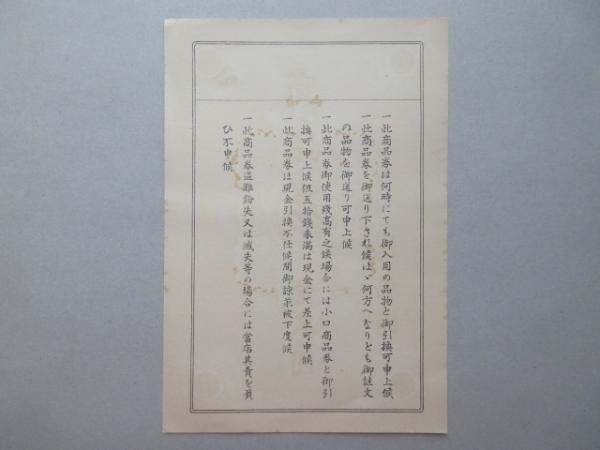 一此商品券は何時にても御入用の品物と御引換可申上候
一此商品券を御送り下され候はゞ何方へなりとも御註文
の品物を御送り可申上候
一此商品券御使用残高有之候場合には小口商品券と御引
換可申上候但五拾錢未滿は現金にて差上可申候
一此商品券は現金引換不仕候間御諒承被下度候
一此商品券盗難紛失又は滅失等の場合には當店其責を負
ひ不申候